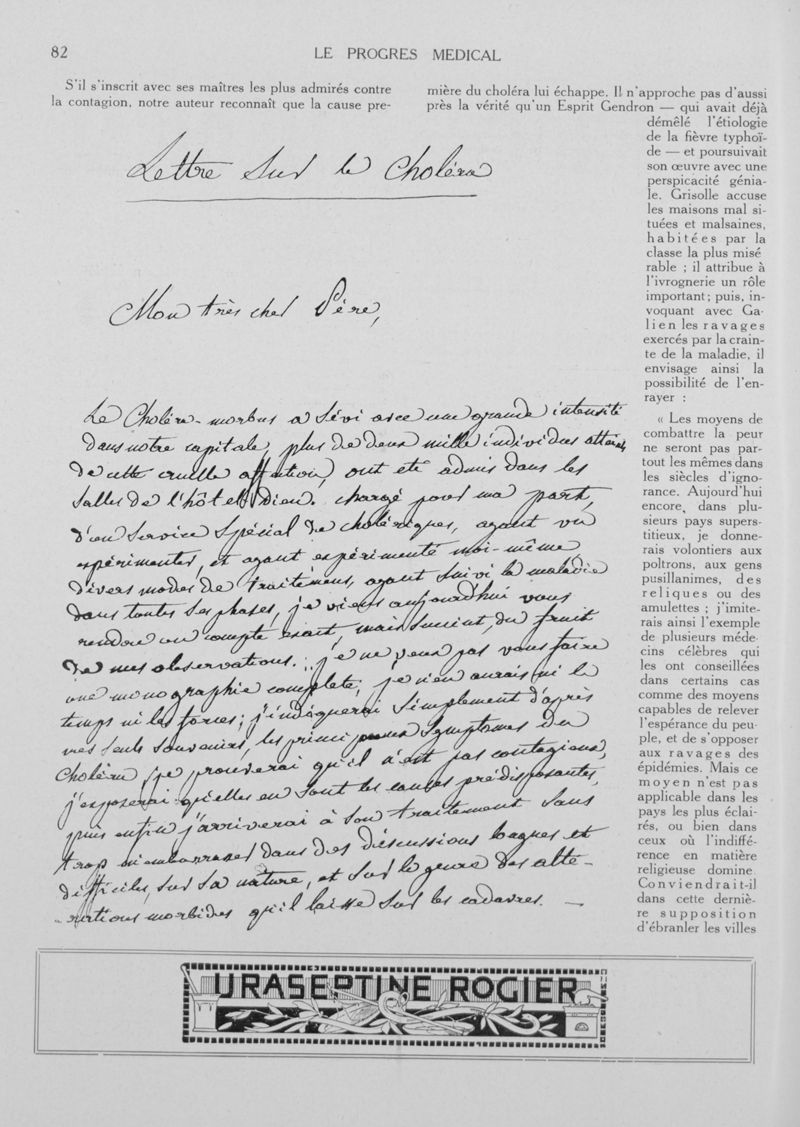 82
LE PROGRES MEDICAL
S'il s'inscrit avec ses maîtres les plus admirés contre
la contagion, notre auteur reconnaît que la cause pre-
mière du choléra lui échappe. Il n'approche pas d'aussi
près la vérité qu'un Esprit Gendron — qui avait déjà
démêlé l'étiologie
de la fièvre typhoï-
de — et poursuivait
son œuvre avec une
perspicacité génia-
le. Grisolle accuse
les maisons mal si-
tuées et malsaines,
habitées par la
classe la plus misé
rable ; il attribue à
l'ivrognerie un rôle
important ; puis, in-
voquant avec Ga-
lien les ravages
exercés par la crain-
te de la maladie, il
envisage ainsi la
possibilité de l'en-
rayer :
« Les moyens de
combattre la peur
ne seront pas par-
tout les mêmes dans
les siècles d'igno-
rance. Aujourd'hui
encore, dans plu-
sieurs pays supers-
titieux, je donne-
rais volontiers aux
poltrons, aux gens
pusillanimes, des
reliques ou des
amulettes ; j'imite-
rais ainsi l'exemple
de plusieurs méde-
cins célèbres qui
les ont conseillées
dans certains cas
comme des moyens
capables de relever
l'espérance du peu-
ple, et de s'opposer
aux ravages des
épidémies. Mais ce
moyen n'est pas
applicable dans les
pays les plus éclai-
rés, ou bien dans
ceux où l'indiffé-
rence en matière
religieuse domine
Conviendrait-il
dans cette derniè-
re supposition
d'ébranler les villes
Lettre sur le Choléra
Mon très cher Père,
Le Choléra-morbus a sévi avec une grande intensité
dans notre capitale, plus de deux mille individus atteints
de cette cruelle affection, ont été admis dans les
salles de l'hôtel-Dieu. chargé pour ma part,
d'un service spécial de cholériques, ayant vu
expérimenter, et ayant expérimenté moi-même,
divers modes de traitemens, ayant suivi la maladie
dans toutes ses phases, je viens aujourd'hui vous
rendre un compte exact, mais succint, du fruit
de mes observations. je ne veux pas vous faire
une monographie complète, je n'en aurais ni le
temps ni les forces ; j'indiquerai simplement d'après
mes seuls souvenirs, les principaux symptomes du
Choléra, je prouverai qu'il n'est pas contagieux,
j'exposerai qu'elles en sont les causes prédisposantes,
puis enfin j'arriverai à son traitement sans
trop m'embarrasser dans des discussions vagues et
difficiles, sur sa nature, et sur le genre des alté-
rations morbides qu'il laisse sur les cadavres. —
URASEPTINE ROGIER